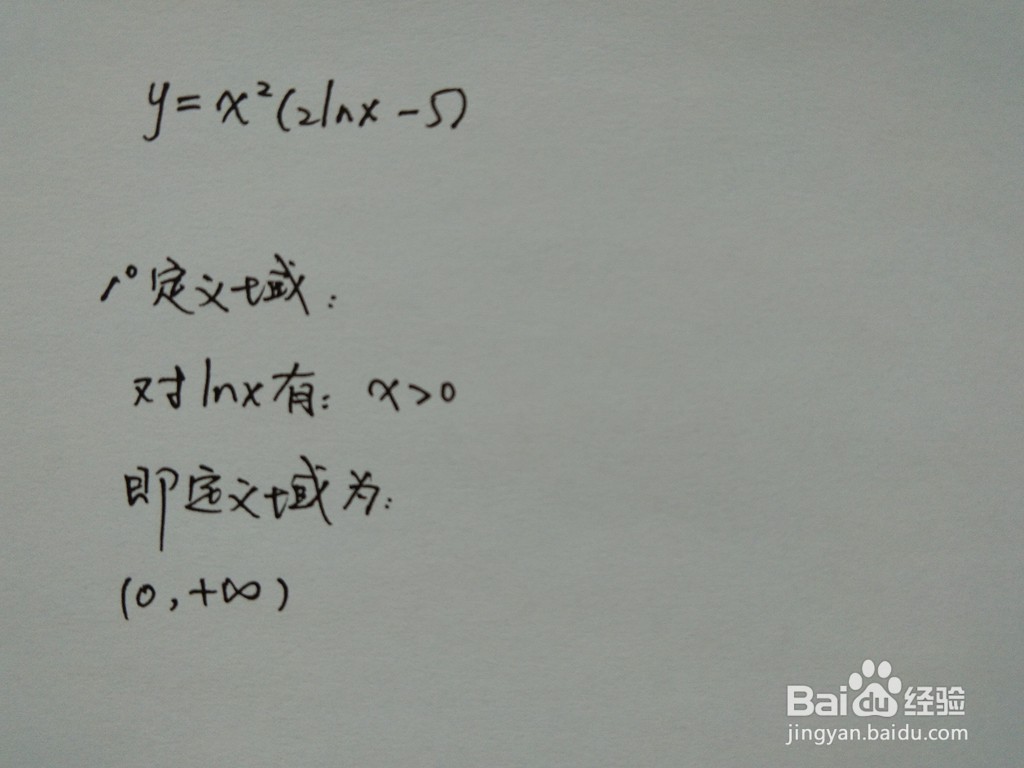 y=x²(2lnx-5)
1°定义域：
对lnx有：x>0
即定义域为：
(0,+∞)
Baidu经验
jingyan.baidu.com